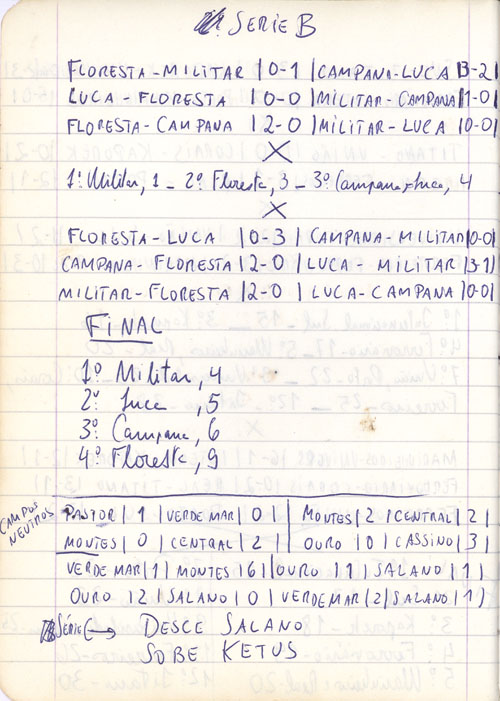 SERIE B
FLORESTA-MILITAR |0-1 |CAMPANA-LUCA |3-2|
LUCA-FLORESTA |0-0 |MILITAR-CAMPANA |1-0|
FLORESTA-CAMPANA |2-0 |MILITAR-LUCA |0-0|
X
1º Militar, 1 - 2º Floresta, 3 - 3º Campana e Luca, 4
X
FLORESTA-LUCA |0-3 | CAMPANA-MILITAR |0-0|
CAMPANA-FLORESTA |2-0 | LUCA - MILITAR |3-1|
MILITAR-FLORESTA |2-0 | LUCA-CAMPANA |0-0|
FINAL
1º Militar, 4
2º Luca, 5
3º Campana, 6
4º Floresta, 9
CAMPOS NEUTROS
PASTOR | 1 | VERDE MAR | 0 | MONTES | 2 | CENTRAL | 2 |
MONTES | 0 | CENTRAL | 2 | OURO | 0 | CASSINO | 3 |
VERDE MAR | 1 | MONTES | 6 | OURO | 1 | SALANO | 1 |
OURO | 2 | SALANO | 0 | VERDEMAR | 2 | SALANO | 1 |
Série C → DESCE SALANO
SOBE KETUS